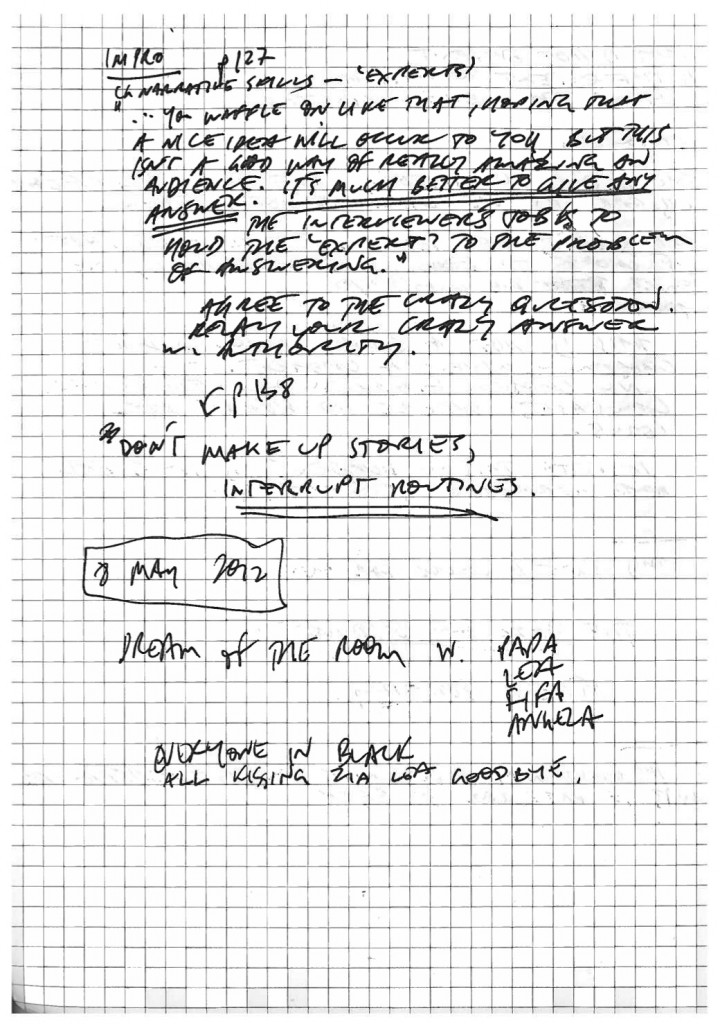 IMPRO p127
Ch NARRATIVE SKILLS – 'EXPERTS'
"... YOU WAFFLE ON LIKE THAT, HOPING THAT
A NICE IDEA WILL OCCUR TO YOU, BUT THIS
ISN'T A GOOD WAY OF REALLY AMAZING AN
AUDIENCE. IT'S MUCH BETTER TO GIVE ANY
ANSWER. THE INTERVIEWER'S JOB IS TO
HOLD THE 'EXPERT' TO THE PROBLEM
OF ANSWERING."
AGREE TO THE CRAZY QUESTION.
RELAY YOUR CRAZY ANSWER
W. AUTHORITY.
p 138
"DON'T MAKE UP STORIES,
INTERRUPT ROUTINES.
8 MAY 2012
DREAM of THE ROOM W. PAPA
LEA
FIFA
ANGELA
EVERYONE IN BLACK
ALL KISSING ZIA LEA GOODBYE.